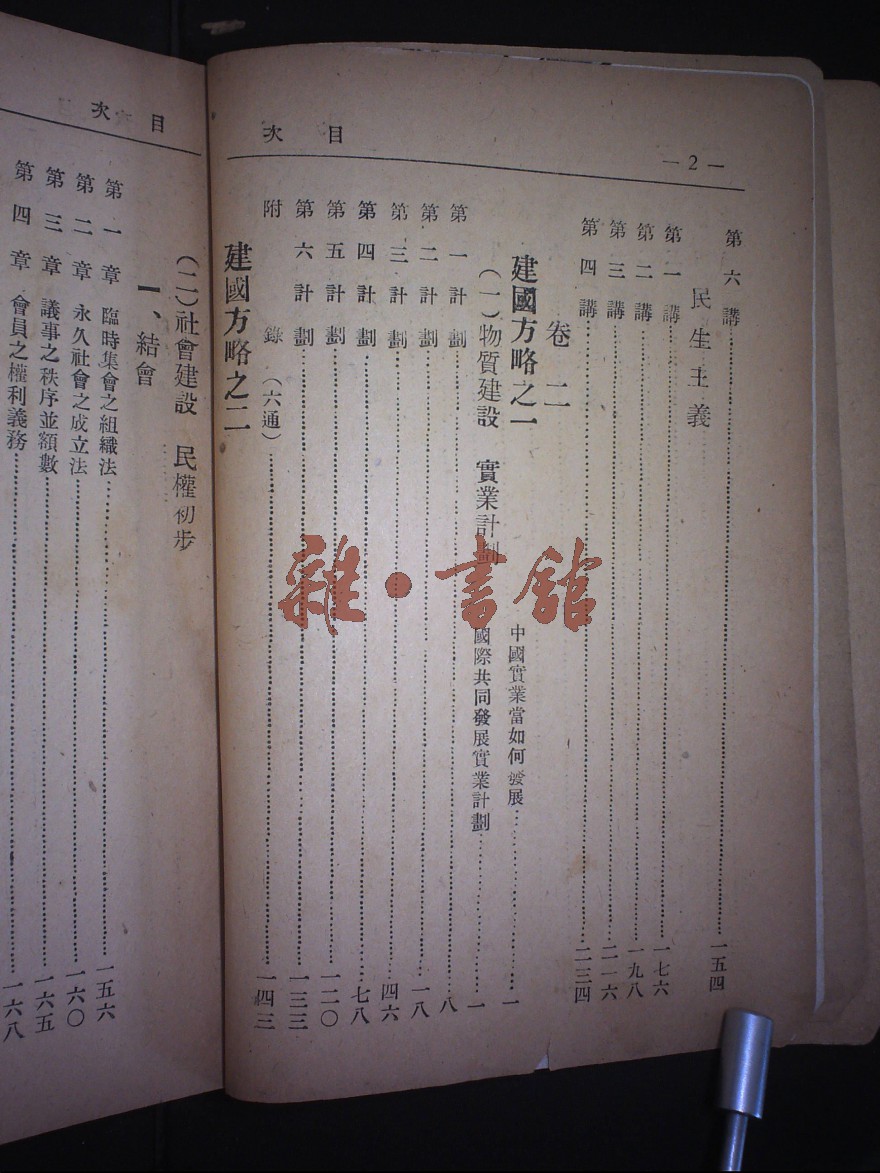 目次
— 2 —
第六講……一五四
民生主義
第一講……一七六
第二講……一九八
第三講……二一六
第四講……二三四
卷二
建國方略之一
中國實業當如何發展……一
(一)物質建設 實業計劃
國際共同發展實業計劃……一
第一計劃……八
第二計劃……一八
第三計劃……四六
第四計劃……七八
第五計劃……一二〇
第六計劃……一三三
附錄(六通)……一四三
建國方略之二
目次
(二)社會建設 民權初步
一、結會
第一章 臨時集會之組織法……一五六
第二章 永久社會之成立法……一六〇
第三章 議事之秩序並額數……一六五
第四章 會員之權利義務……一六八
雜·書館